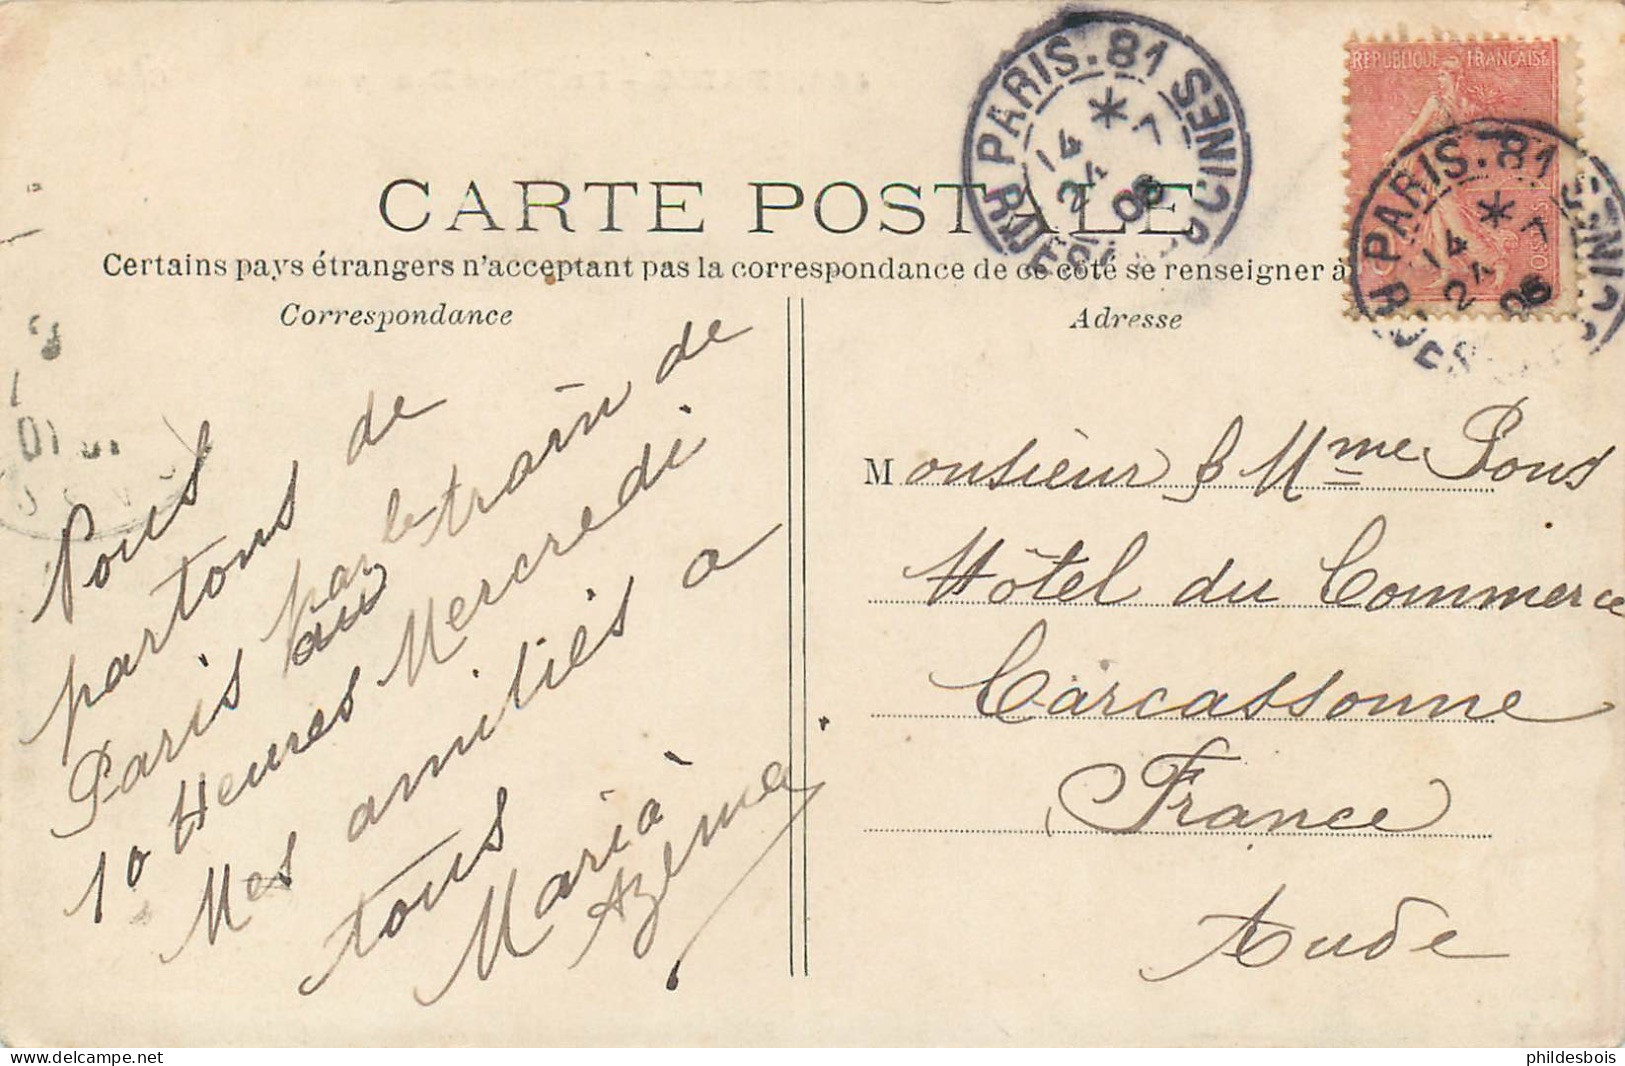 CARTE POSTALE
Certains pays étrangers n'acceptant pas la correspondance de ce côté se renseigner à
Correspondance
Adresse
RÉPUBLIQUE FRANÇAISE
PARIS. 81
14 * 7
24
06
PARIS. 81
14 * 7
24
06
Nous
partons de
Paris par le train de
au
10 Heures Mercredi
Mes amitiés a
tous
Marià
Azéma
Monsieur & Mme Pous
Hôtel du Commerce
Carcassonne
France
Aude
phildesbois